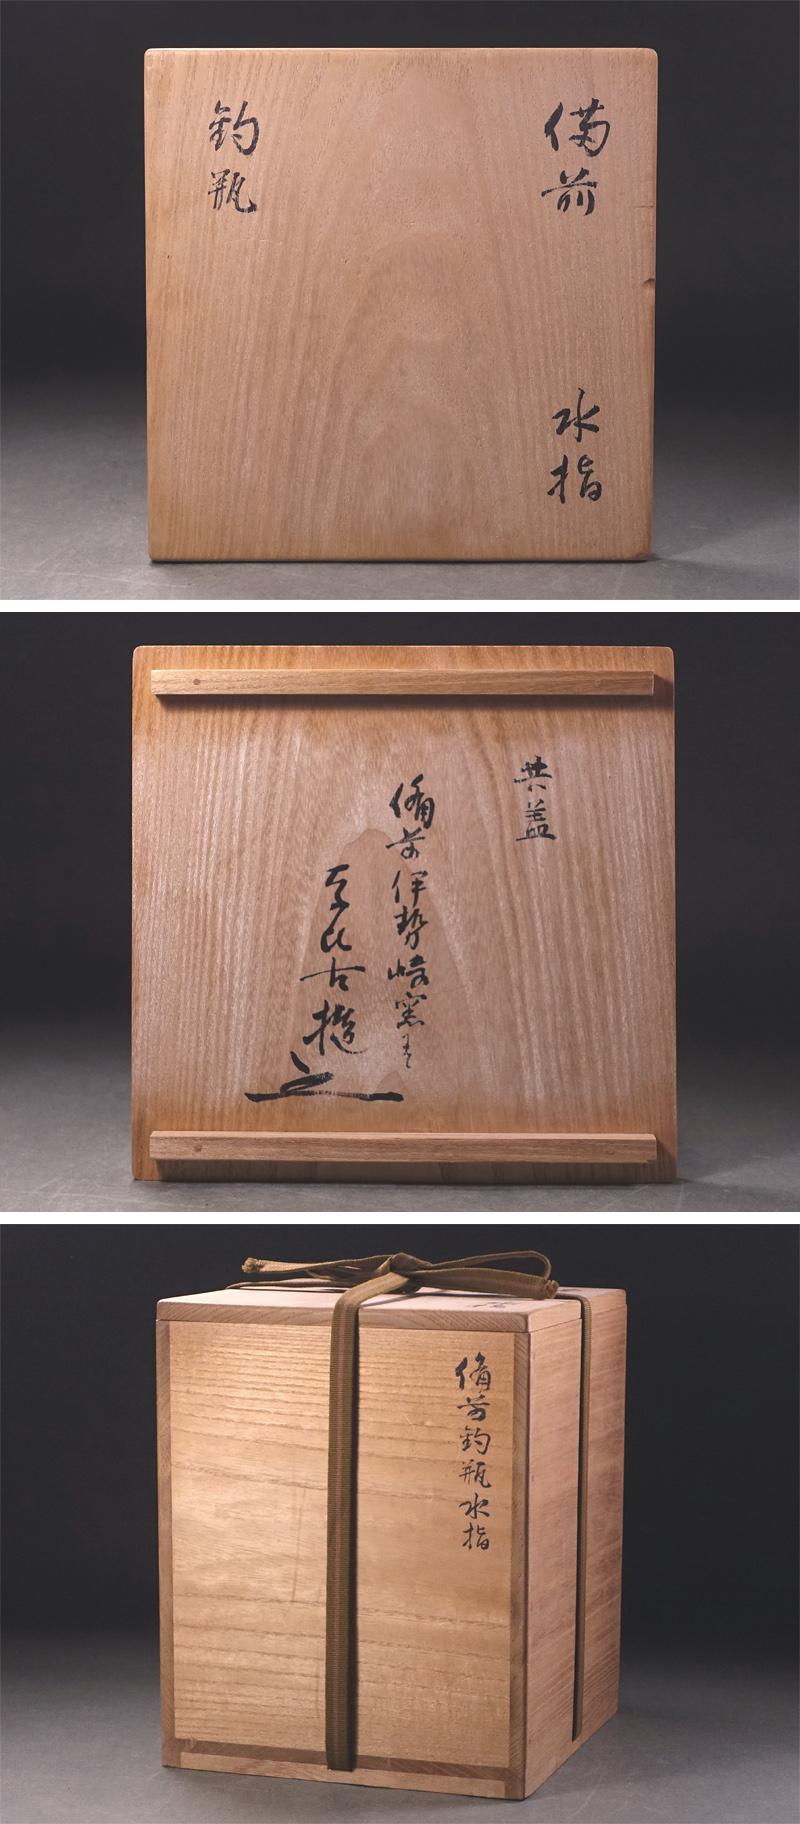 備前
水指
釣瓶
共蓋
備前伊勢崎窯
古
備前釣瓶水指